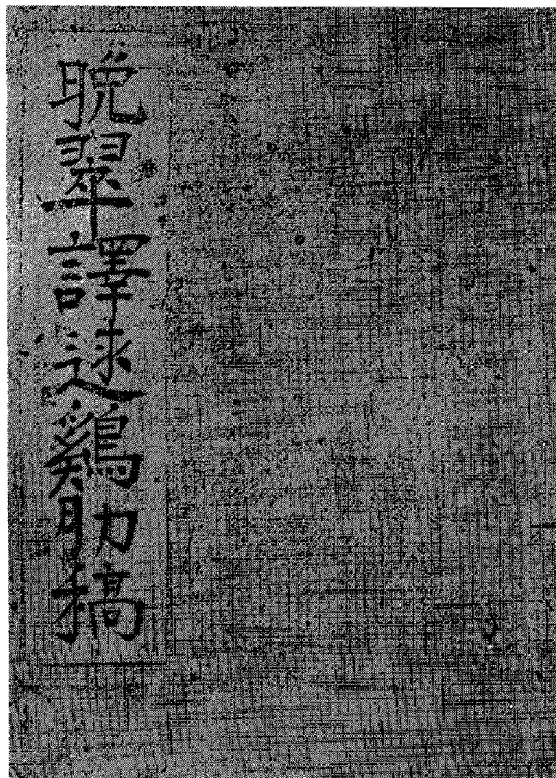 晩翠譯述鷄肋稿